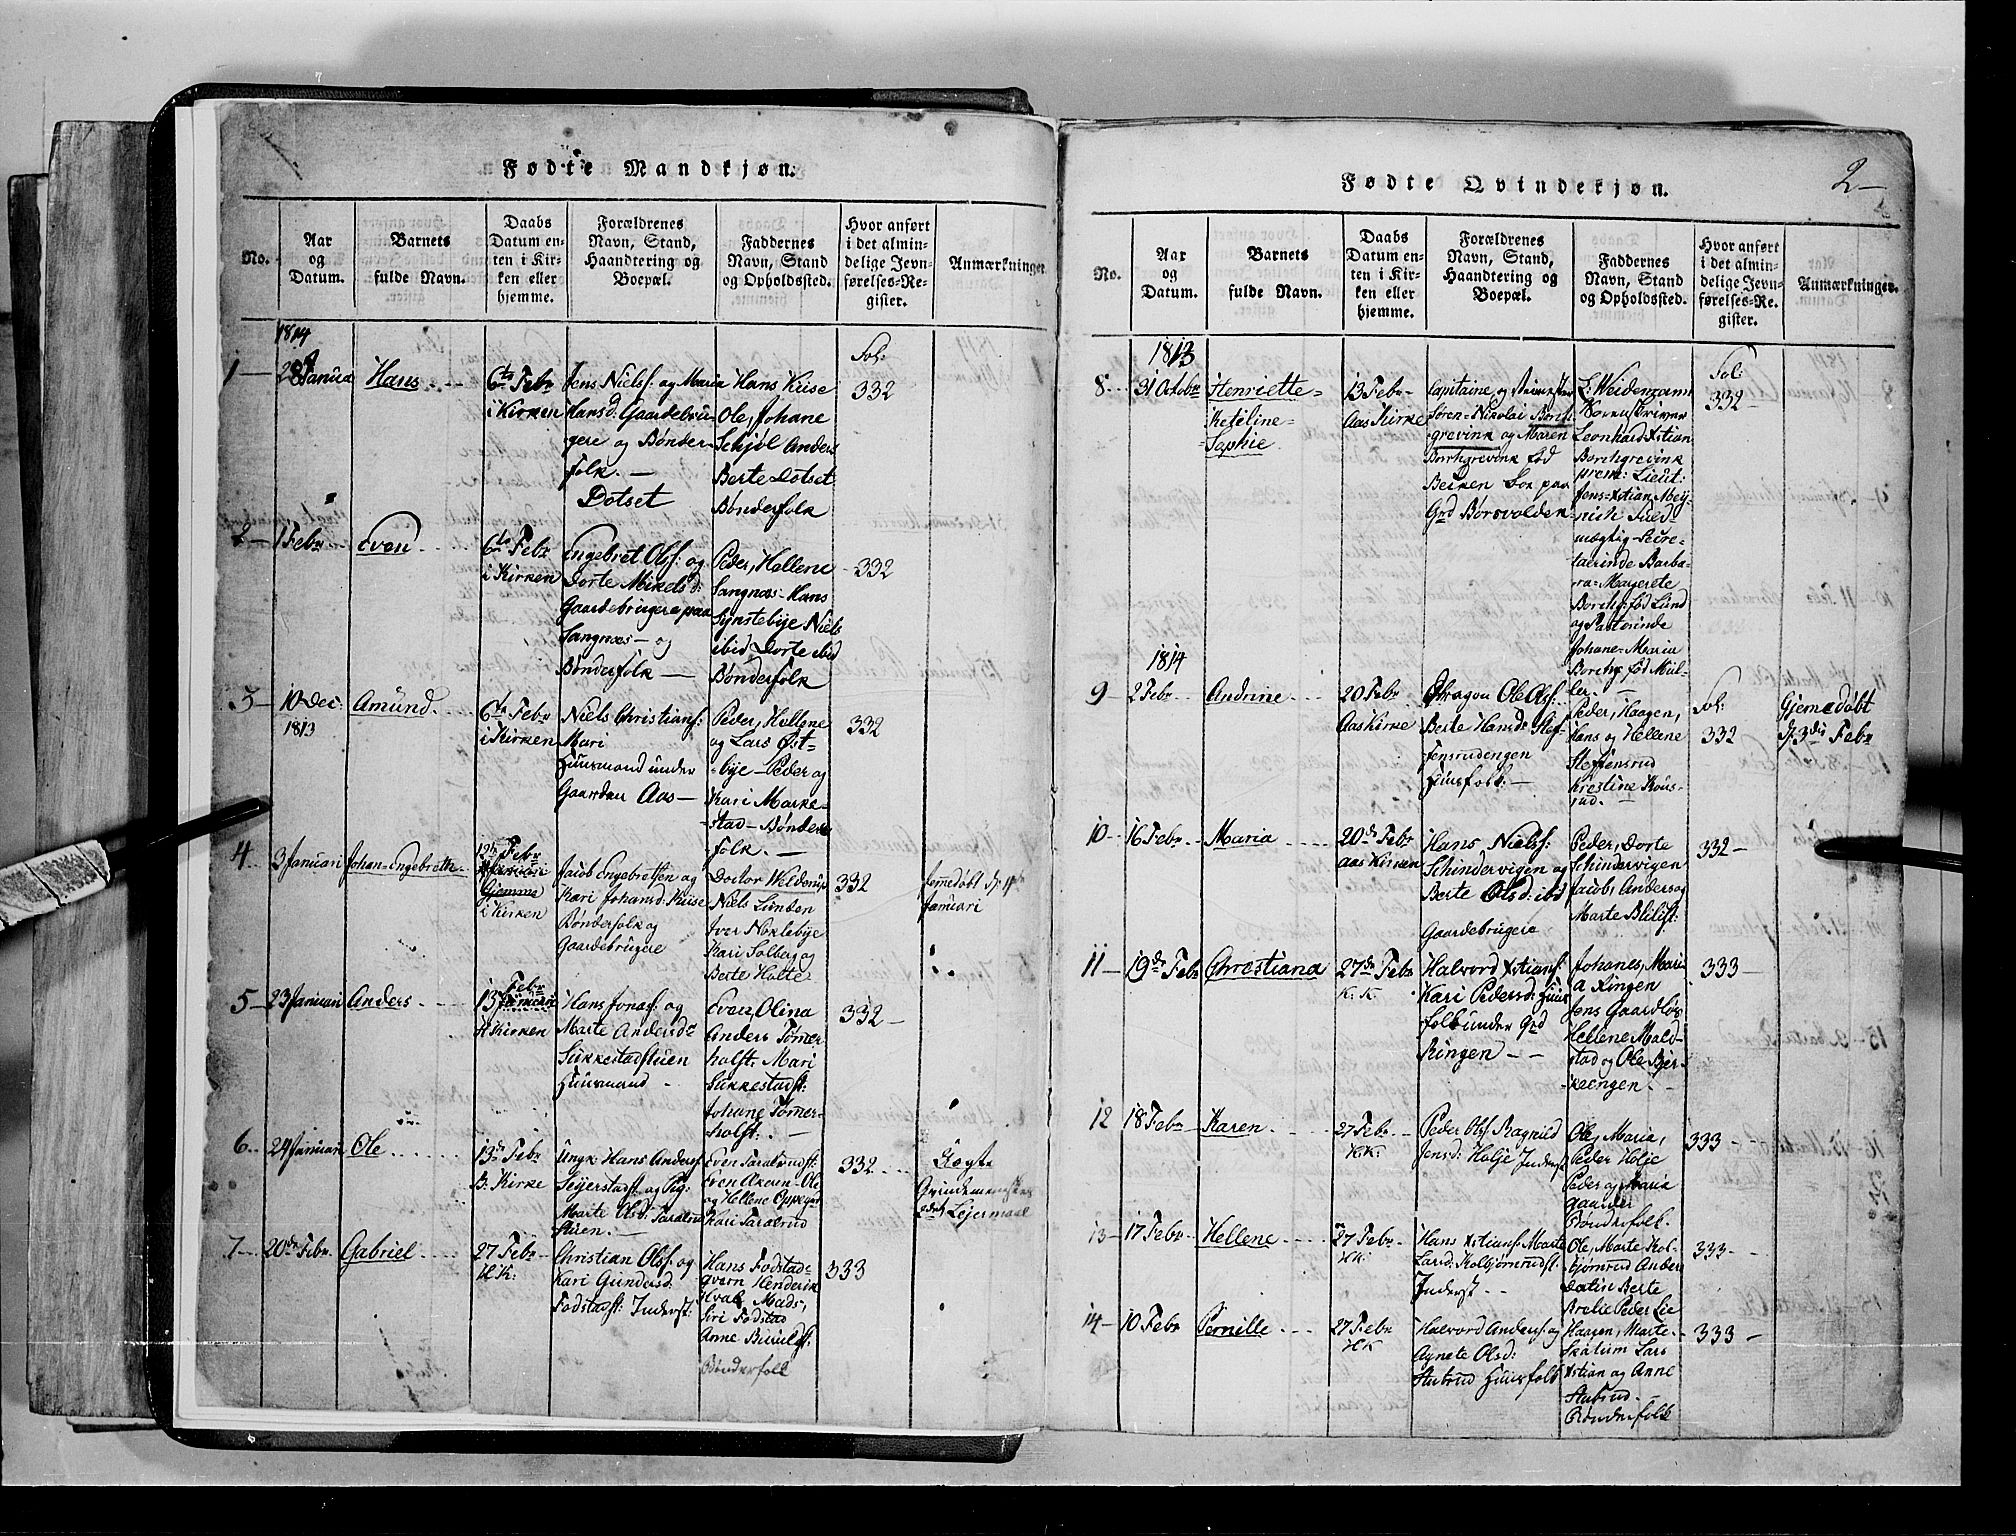 Fødte Mandkjøn.
No.
Aar
og
Datum.
Barnets
fulde Navn.
Daabs
Datum en-
ten i Kir-
ken eller
hjemme.
Forældrenes
Navn, Stand,
Haandtering og
Boepæl.
Faddernes
Navn, Stand
og Opholdssted.
Hvor anført
i det almin-
delige Jevn-
førelses-Re-
gister.
Anmærkninger
1814
1
28 Januar
Hans
6te Febr
i Kirken
Jens Nielsf: og Maria
Hansd: Gaardebru-
gere og Bønder-
folk. —
Dotset
Hans Kiise
Ole, Johane
Schjøl Anders
Berte Dotset
Bønderfolk
Fol:
332
2
1 Febr
Even
6te Febr
i Kirken
Engebret Olsf: og
Dorte Mikelsd:
Gaardebrugere paa
Sangnæs — og
Bønderfolk —
Peder, Hellene
Sangnæs — Hans
Synstebye Niels
ibid Dorte ibid
Bønderfolk
332
3
10 Dec:
1813
Amund
6te Febr
i Kirken
Niels Christians:
Mari
Huusmand under
Gaarden Aas —
Peder, Hellene
og Lars Øst-
bye — Peder og
Kari Marke-
stad — Bønder
folk. —
332
4
3 Januari
Johan-Engebreth
Febr
Hjemme
i Kirken
Jacob Engebretsen og
Kari Johansd: Kiise
Bønderfolk og
Gaardebrugere
Doctor
Niels Lunden
Iver Noklebye
Kari Solberg og
Berte Holte
332
Januari
5
23 Januari
Anders
13 Febr
H Kirken
Hans Jonasf: og
Marte Andersd:
Sukkestadstuen
Huusmand
Even, Olina
Anders Tømer-
holft: Mari
Sukkestadf:
Johane Tømer-
holft: —
332
6
24 Januari
Ole
13de Febr
B: Kirke
Ungk: Hans Andersf
Seyerstadf: og Pig:
Marte Olsd:
stuen. —
Even
Even Ole
og Hellene
Kari
332
Lejermaal
7
20de Febr
Gabriel
27 Febr
H K:
Christian Olsf: og
Kari Gundersd:
Fodstadf: Inderst:
Hans Fodstad
Hval, Mads,
Siri Fodstad
Anne
Bønderfolk
333
2 —
Fødte Qvindekjøn.
No.
Aar
og
Datum.
Barnets
fulde Navn.
Daabs
Datum en-
ten i Kir-
ken eller
hjemme.
Forældrenes
Navn, Stand,
Haandtering og
Boepæl.
Faddernes
Navn, Stand
og Opholdssted.
Hvor anført
i det almin-
delige Jevn-
førelses-Re-
gister.
Anmærkninger.
1813
8
31 Octobr
Henriette-
Ketiline-
Sophie
13 Febr
Aas Kirke
Capitaine og
Søren Nikolai Borch-
grevink og Maren
Borchgrevink fød
paa
Grd Børsvolden
L: Weidemann
Leonhard Xstian
Borchgrevink
prem: Lieut:
Jens Xstian Mey-
nich Fuld-
mægtig Secre-
tairinde Barba-
ra Margrete
Borchg: fød Lund
og Pastorinde
Johane Maria
Borchg fød Mül-
ler. —
Fol:
332
1814
9
2 Febr
Andrine
20 Febr
Aas Kirke
Dragon Ole Olsf:
Berte Hansd: Stef-
fensrudengen
Huusfolk: —
Peder, Haagen,
Hans og Hellene
Steffensrud
Kristine
rud. —
Fol:
332
Hjemedøbt
d 3die Febr
10
16 Febr
Maria
20de Febr
Aas Kirken
Hans Nielsf:
Schindervigen og
Berte Olsd: ibd
Gaardebrugere
Peder, Dorte
Schindervigen
Jacob, Anders og
Marte
332
11
19de Febr
Christiana
27de Febr
K. K.
Halvord Xstiansf:
Kari Pedersd: Huus
folk under Grd
Ringen —
Johanes, Maria
a Ringen
Jens Gaardløs
Hellene Mald-
stad og Ole Bjer-
keengen.
333
12
18 Febr
Karen
27 Febr
H.K.
Peder Olsf Ragnild
Jensd: Holje Inderst
Ole, Maria,
Peder Holje
Peder og Maria
Bønderfolk.
333
13
17 Febr
Hellene
27 Febr
H.K:
Hans Xstiansf: Marte
Larsd: Kolbjørnrudf:
Inderst
Ole, Marte Kol-
bjørnrud Anders
Berte
Peder Lie
333
14
10 Febr
Pernille
27 Febr
H.K
Halvord Andersf: og
Agnete Olsd:
Stubrud Huusfolk
Haagen, Marte
Skatum Lars
Xstian og Anne
Stubrud. —
Bønderfolk
333